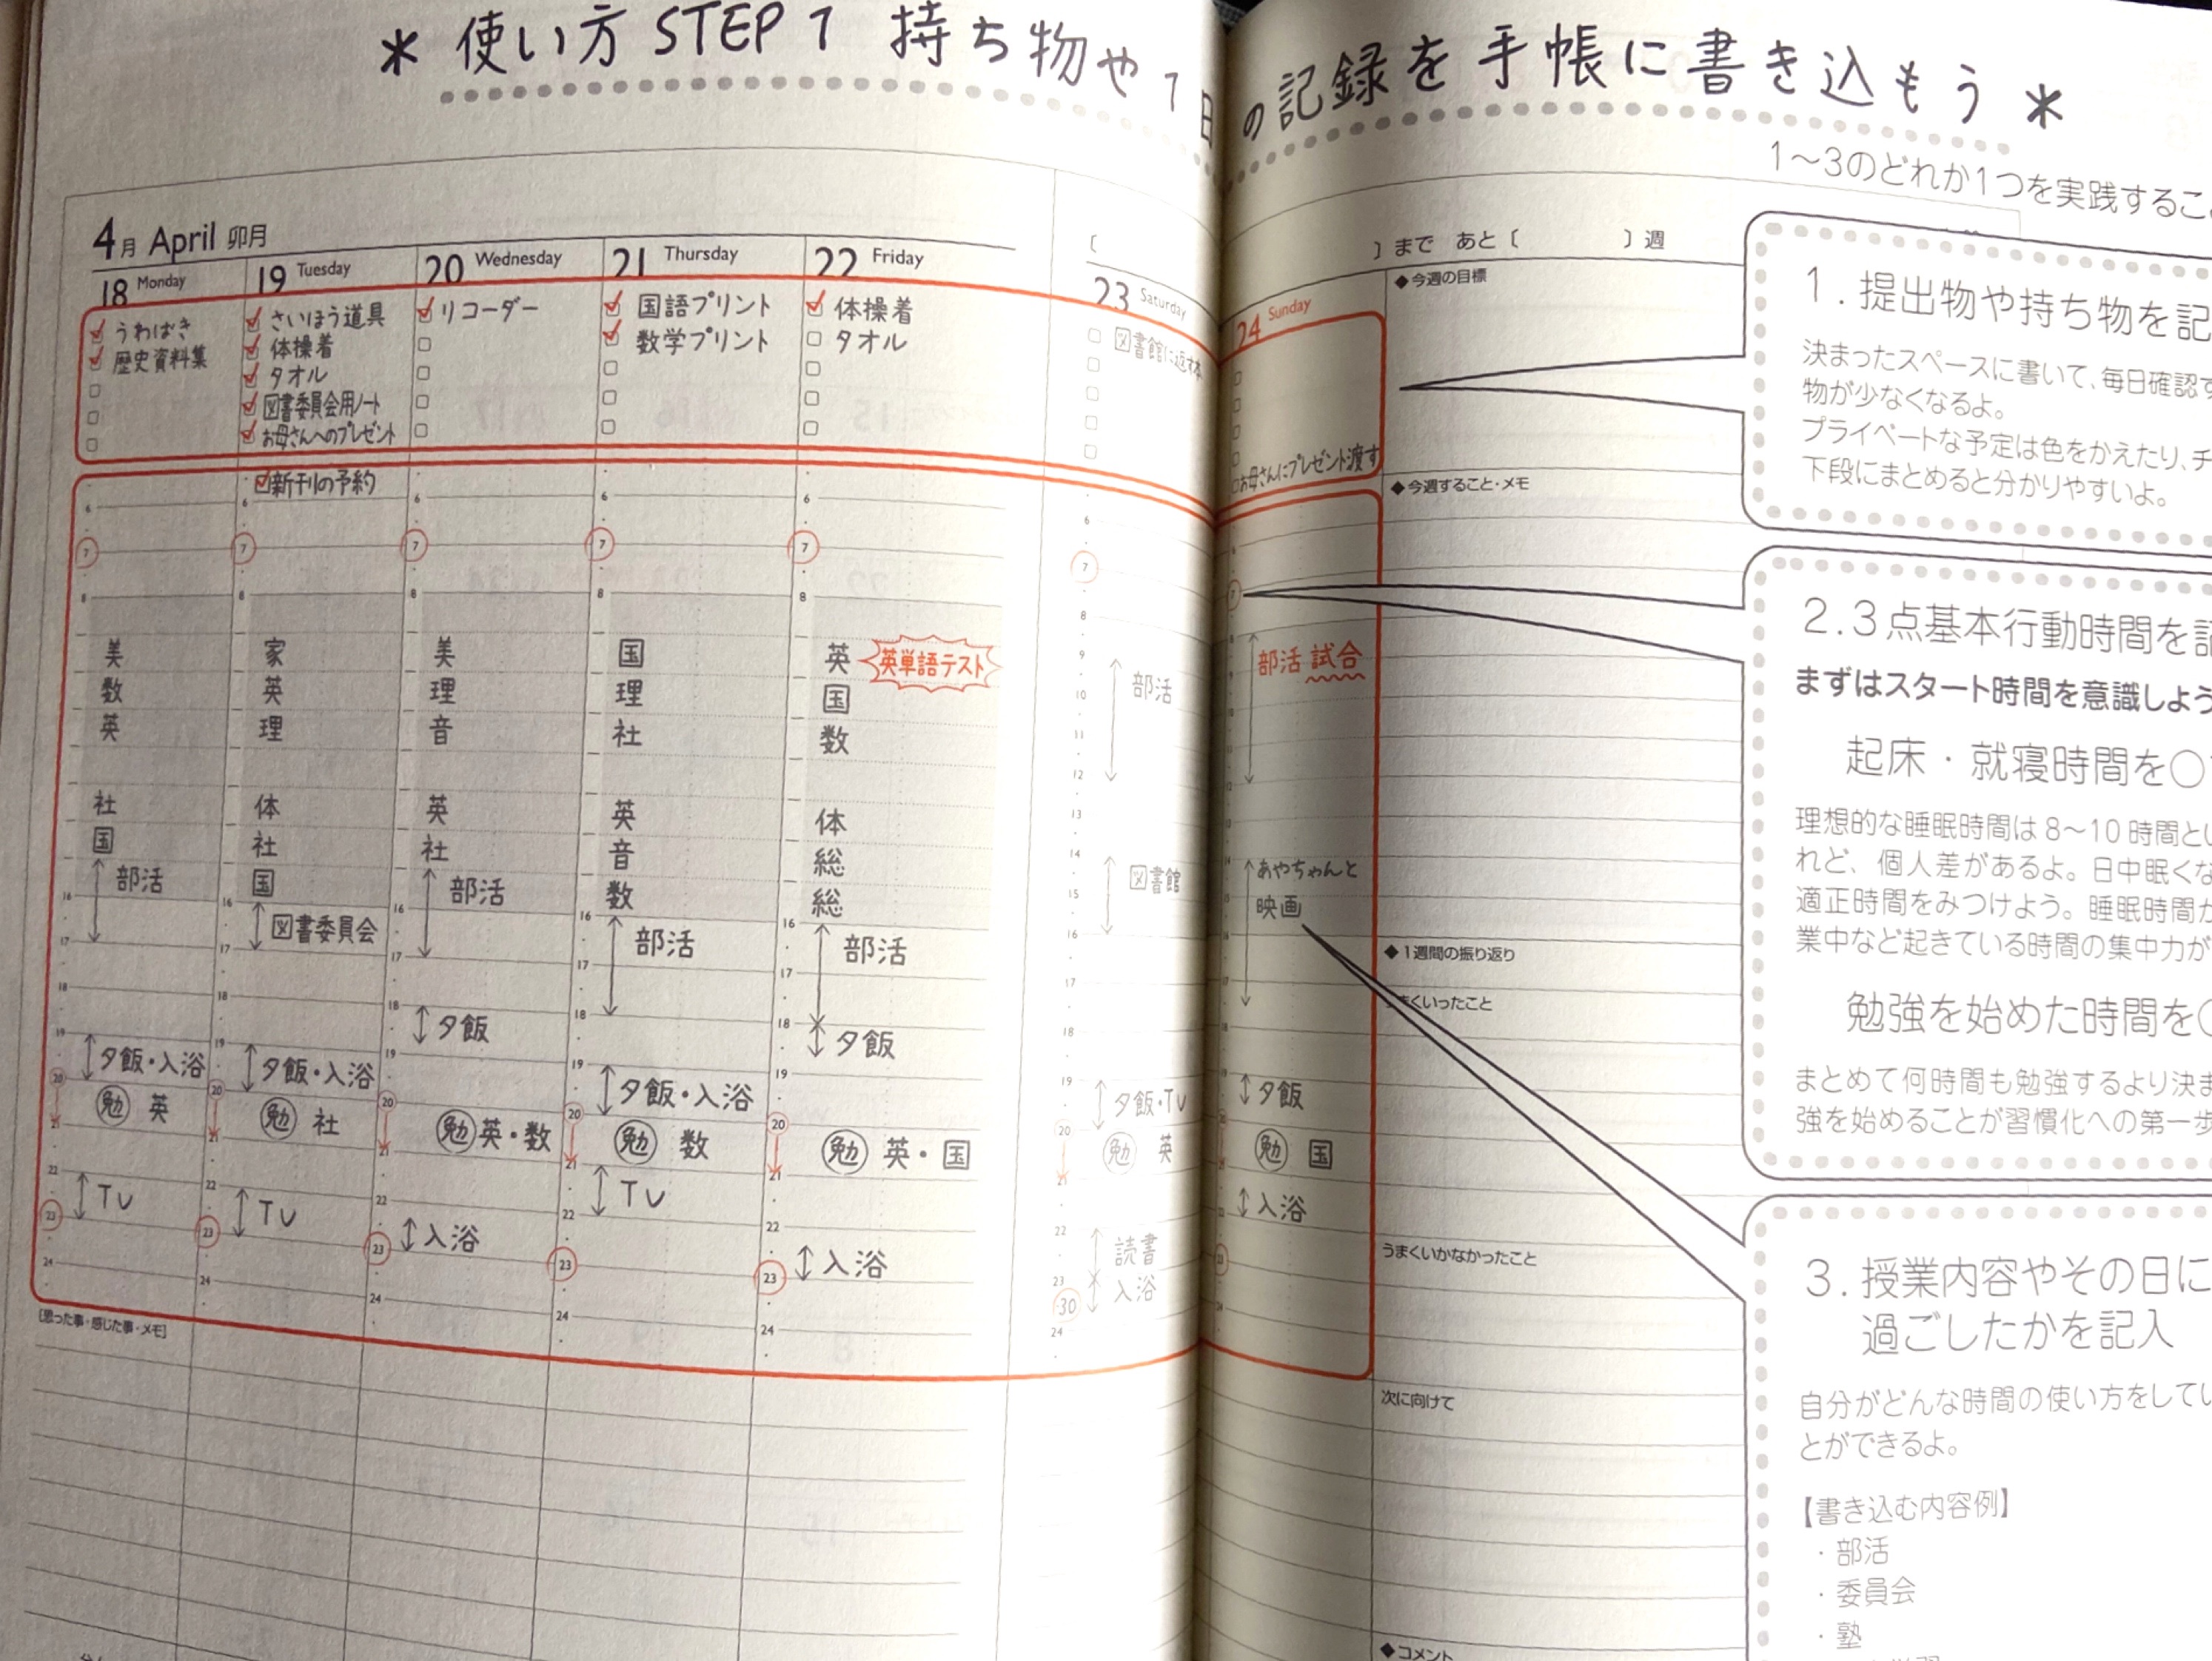 ＊使い方 STEP 1 持ち物や1日の記録を手帳に書き込もう＊
1～3のどれか1つを実践するこ
4月 April 卯月
〔 〕まで あと〔 〕週
18 Monday
うわばき
歴史資料集
6
7
8
美
数
英
社
国
部活
16
17
18
19
夕飯・入浴
20
勉 英
21
22
TV
23
24
19 Tuesday
さいほう道具
体操着
タオル
図書委員会用ノート
お母さんへのプレゼント
新刊の予約
6
7
8
家
英
理
体
社
国
16
図書委員会
17
18
19
夕飯・入浴
20
勉 社
21
22
TV
23
24
20 Wednesday
リコーダー
6
7
8
美
理
音
英
社
部活
16
17
18
夕飯
19
20
勉 英・数
21
22
入浴
23
24
21 Thursday
国語プリント
数学プリント
6
7
8
国
理
社
英
音
数
16
部活
17
18
19
夕飯・入浴
20
勉 数
21
TV
22
23
24
22 Friday
体操着
タオル
6
7
8
英 英単語テスト
国
数
体
総
総
16
部活
17
18
夕飯
19
20
勉 英・国
21
22
入浴
23
24
23 Saturday
図書館に返す本
6
7
8
9
部活
10
11
12
13
14
図書館
15
16
17
18
19
夕飯・TV
20
勉 英
21
22
読書
23
入浴
30
24
24 Sunday
お母さんにプレゼント渡す
7
部活 試合
あやちゃんと
映画
夕飯
勉 国
入浴
[思った事・感じた事・メモ]
◆今週の目標
◆今週すること・メモ
◆1週間の振り返り
まくいったこと
うまくいかなかったこと
次に向けて
◆コメント
1. 提出物や持ち物を記
決まったスペースに書いて、毎日確認す
物が少なくなるよ。
プライベートな予定は色をかえたり、チ
下段にまとめると分かりやすいよ。
2.3点基本行動時間を記
まずはスタート時間を意識しよう
起床・就寝時間を○
理想的な睡眠時間は8～10時間とい
れど、個人差があるよ。日中眠くな
適正時間をみつけよう。睡眠時間が
業中など起きている時間の集中力が
勉強を始めた時間を○
まとめて何時間も勉強するより決ま
強を始めることが習慣化への第一歩
3. 授業内容やその日に
過ごしたかを記入
自分がどんな時間の使い方をしてい
とができるよ。
【書き込む内容例】
・部活
・委員会
・塾